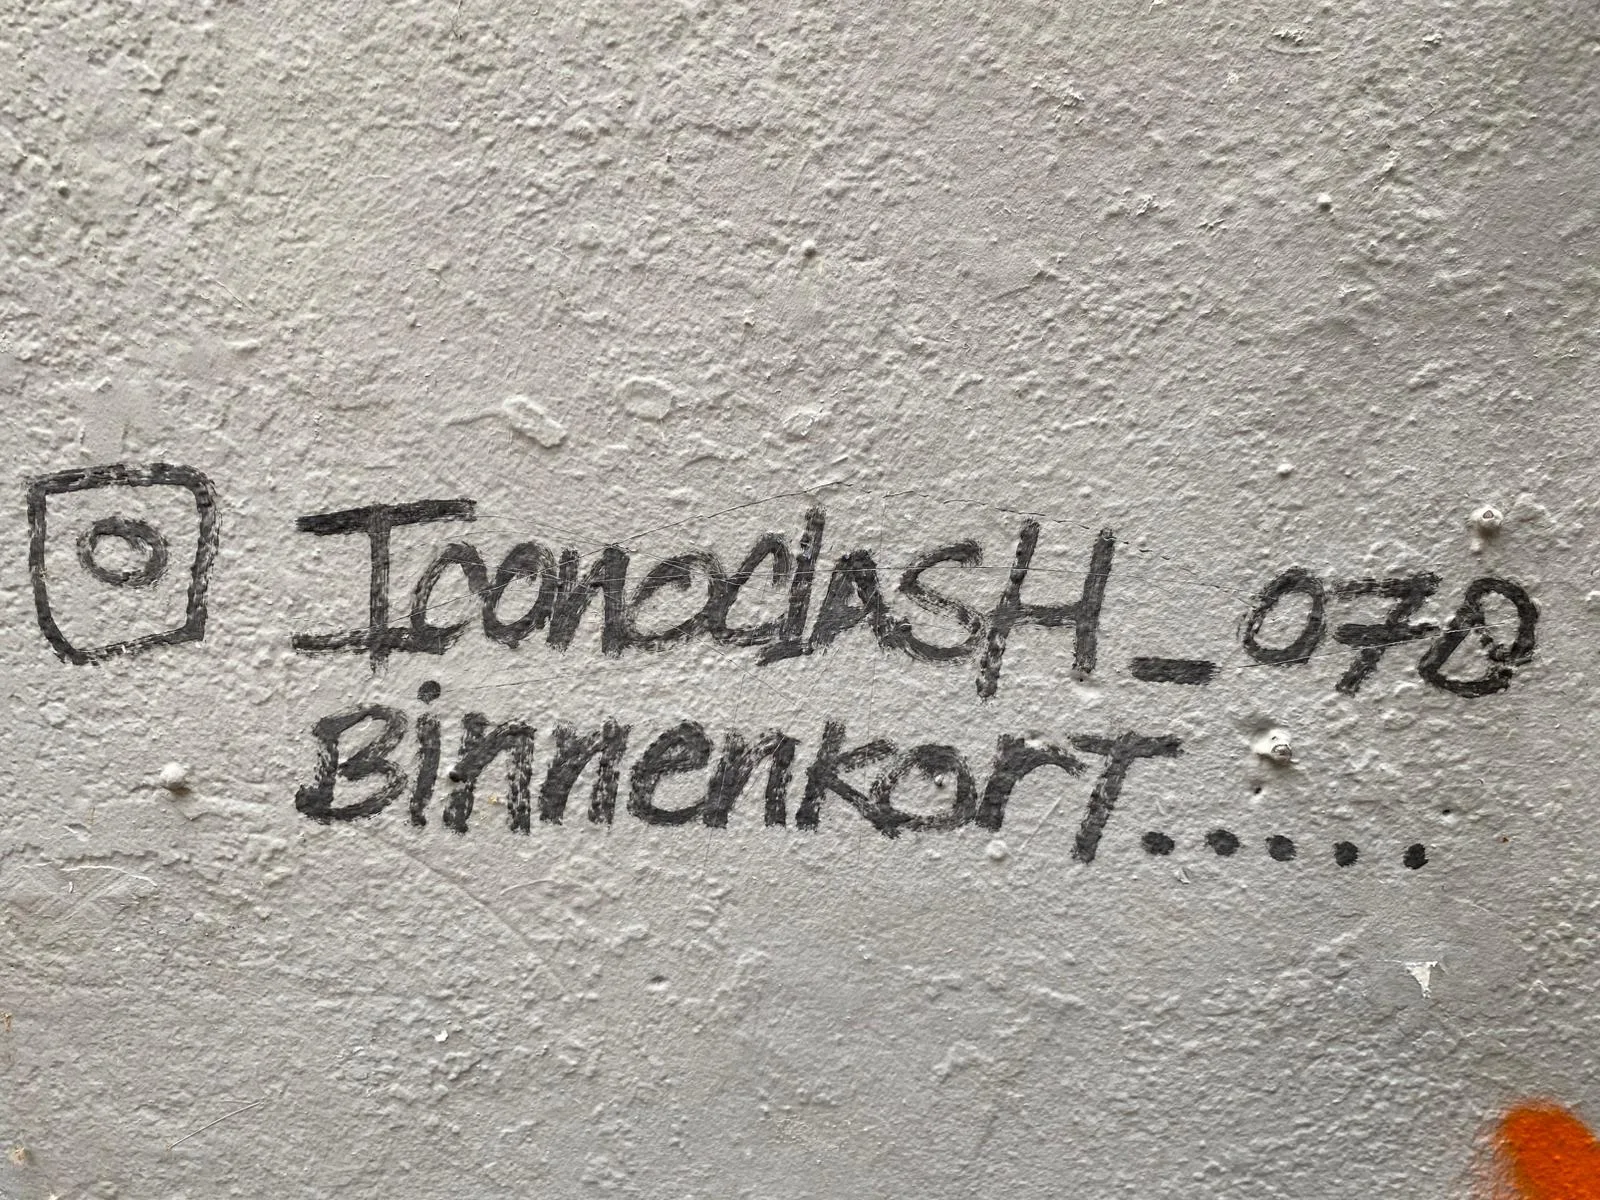 IconoclasH_070
BinnenkorT.....